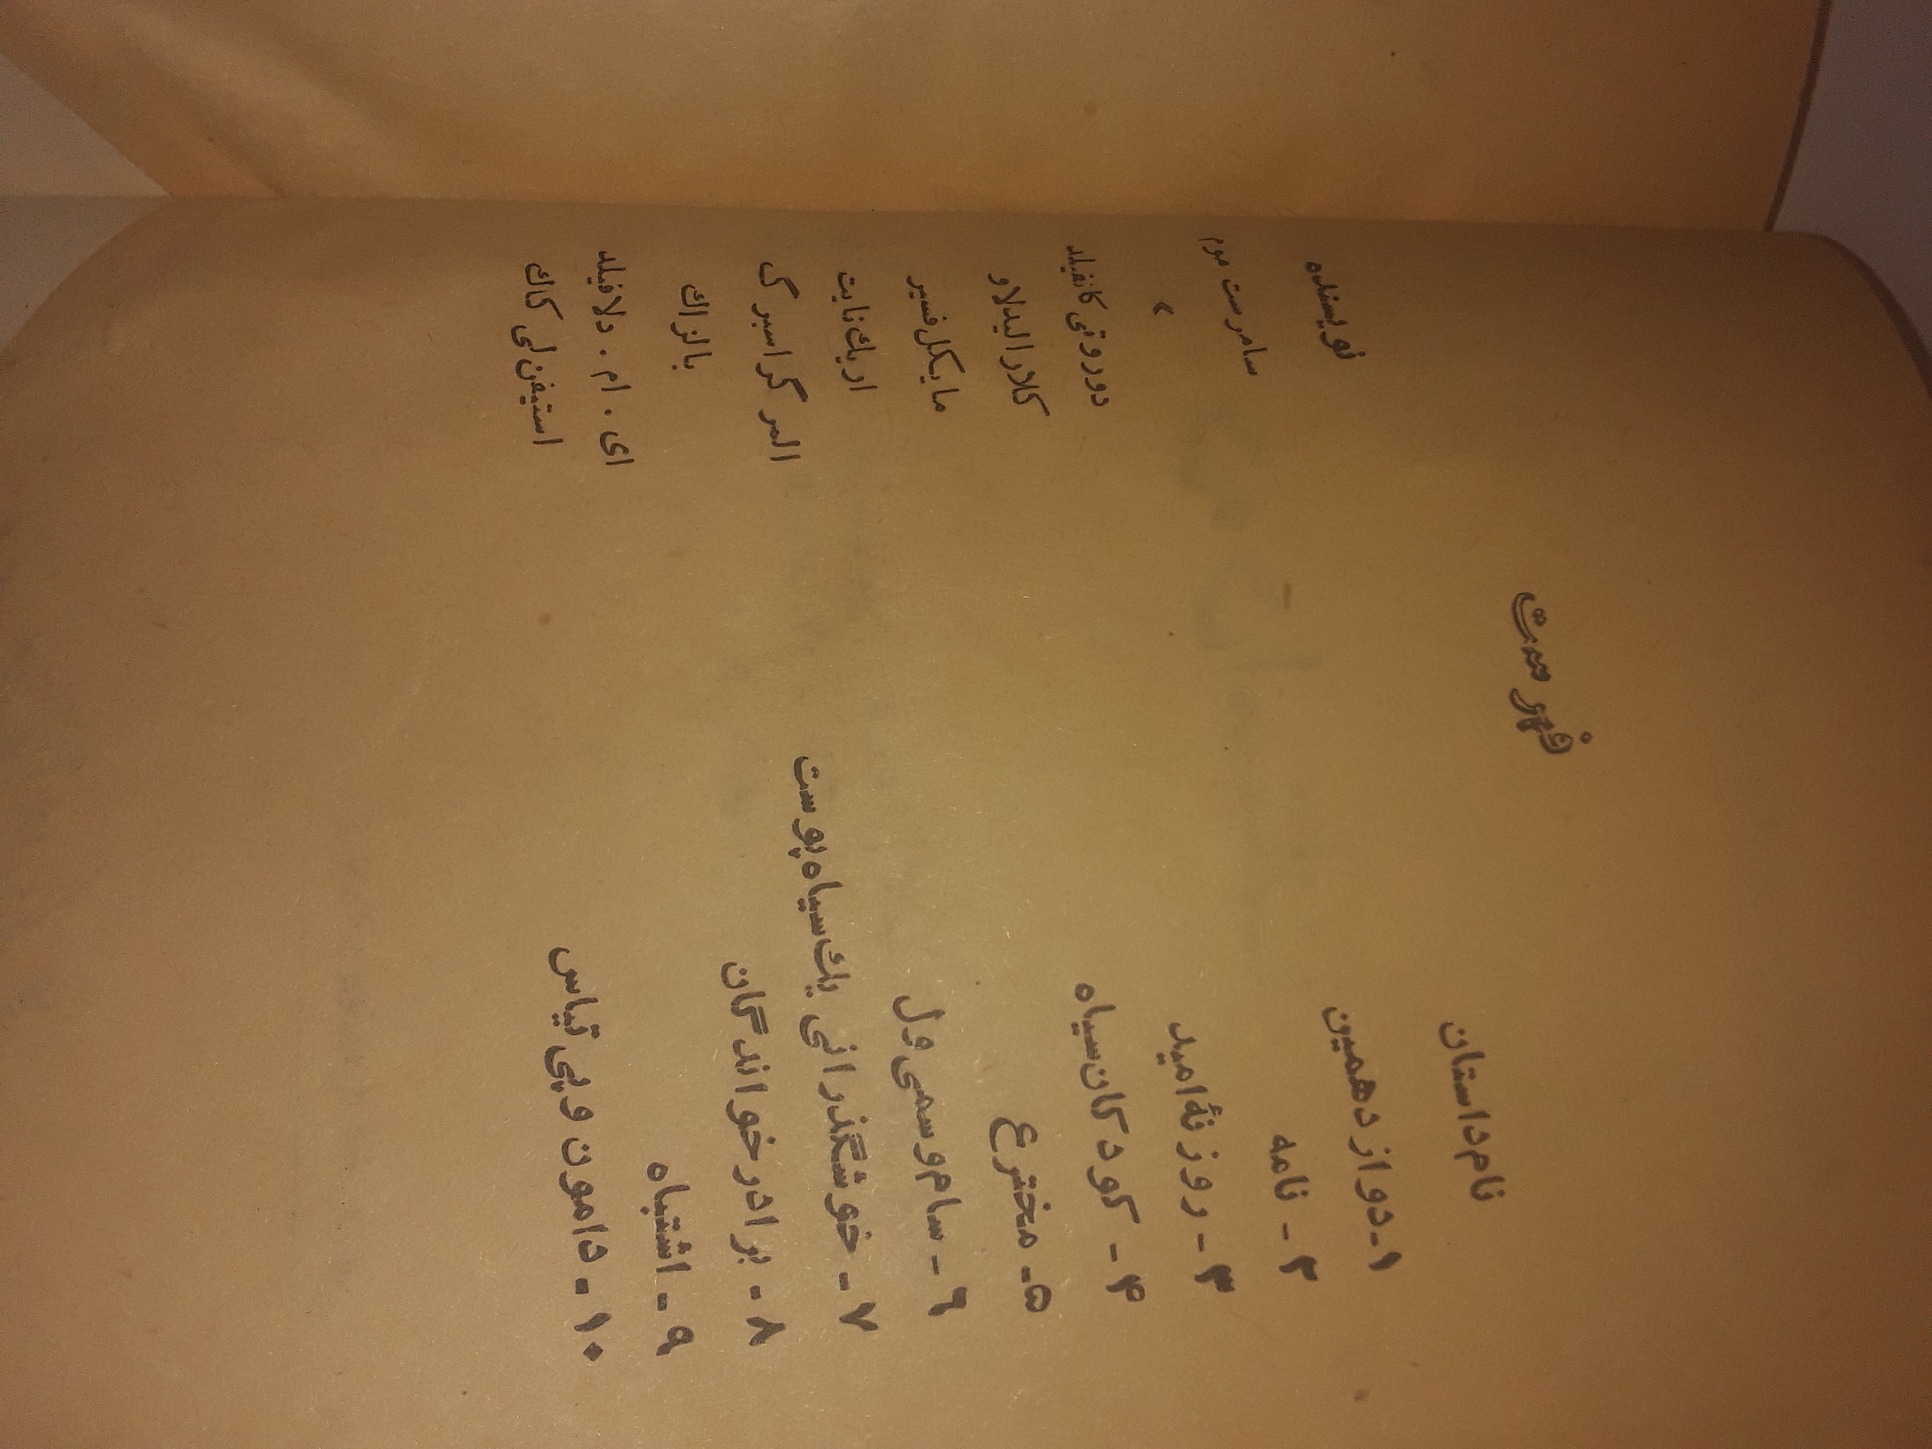 فهرست
نام داستان نویسنده
۱- دوازدهمین سامرست موم
۲- نامه »
۳- روزنهٔ امید دوروتی کانفیلد
۴- کودکان سیاه کلارا لیدلاو
۵- مخترع مایکل فسیر
۶- سام و سمی ول اریک نایت
۷- خوشگذرانی یک سیاه پوست المر گراسبرگ
۸- برادرخواندگان بالزاک
۹- اشتباه ای. ام. دلافیلد
۱۰- دامون و پی تیاس استیفن لی کاک